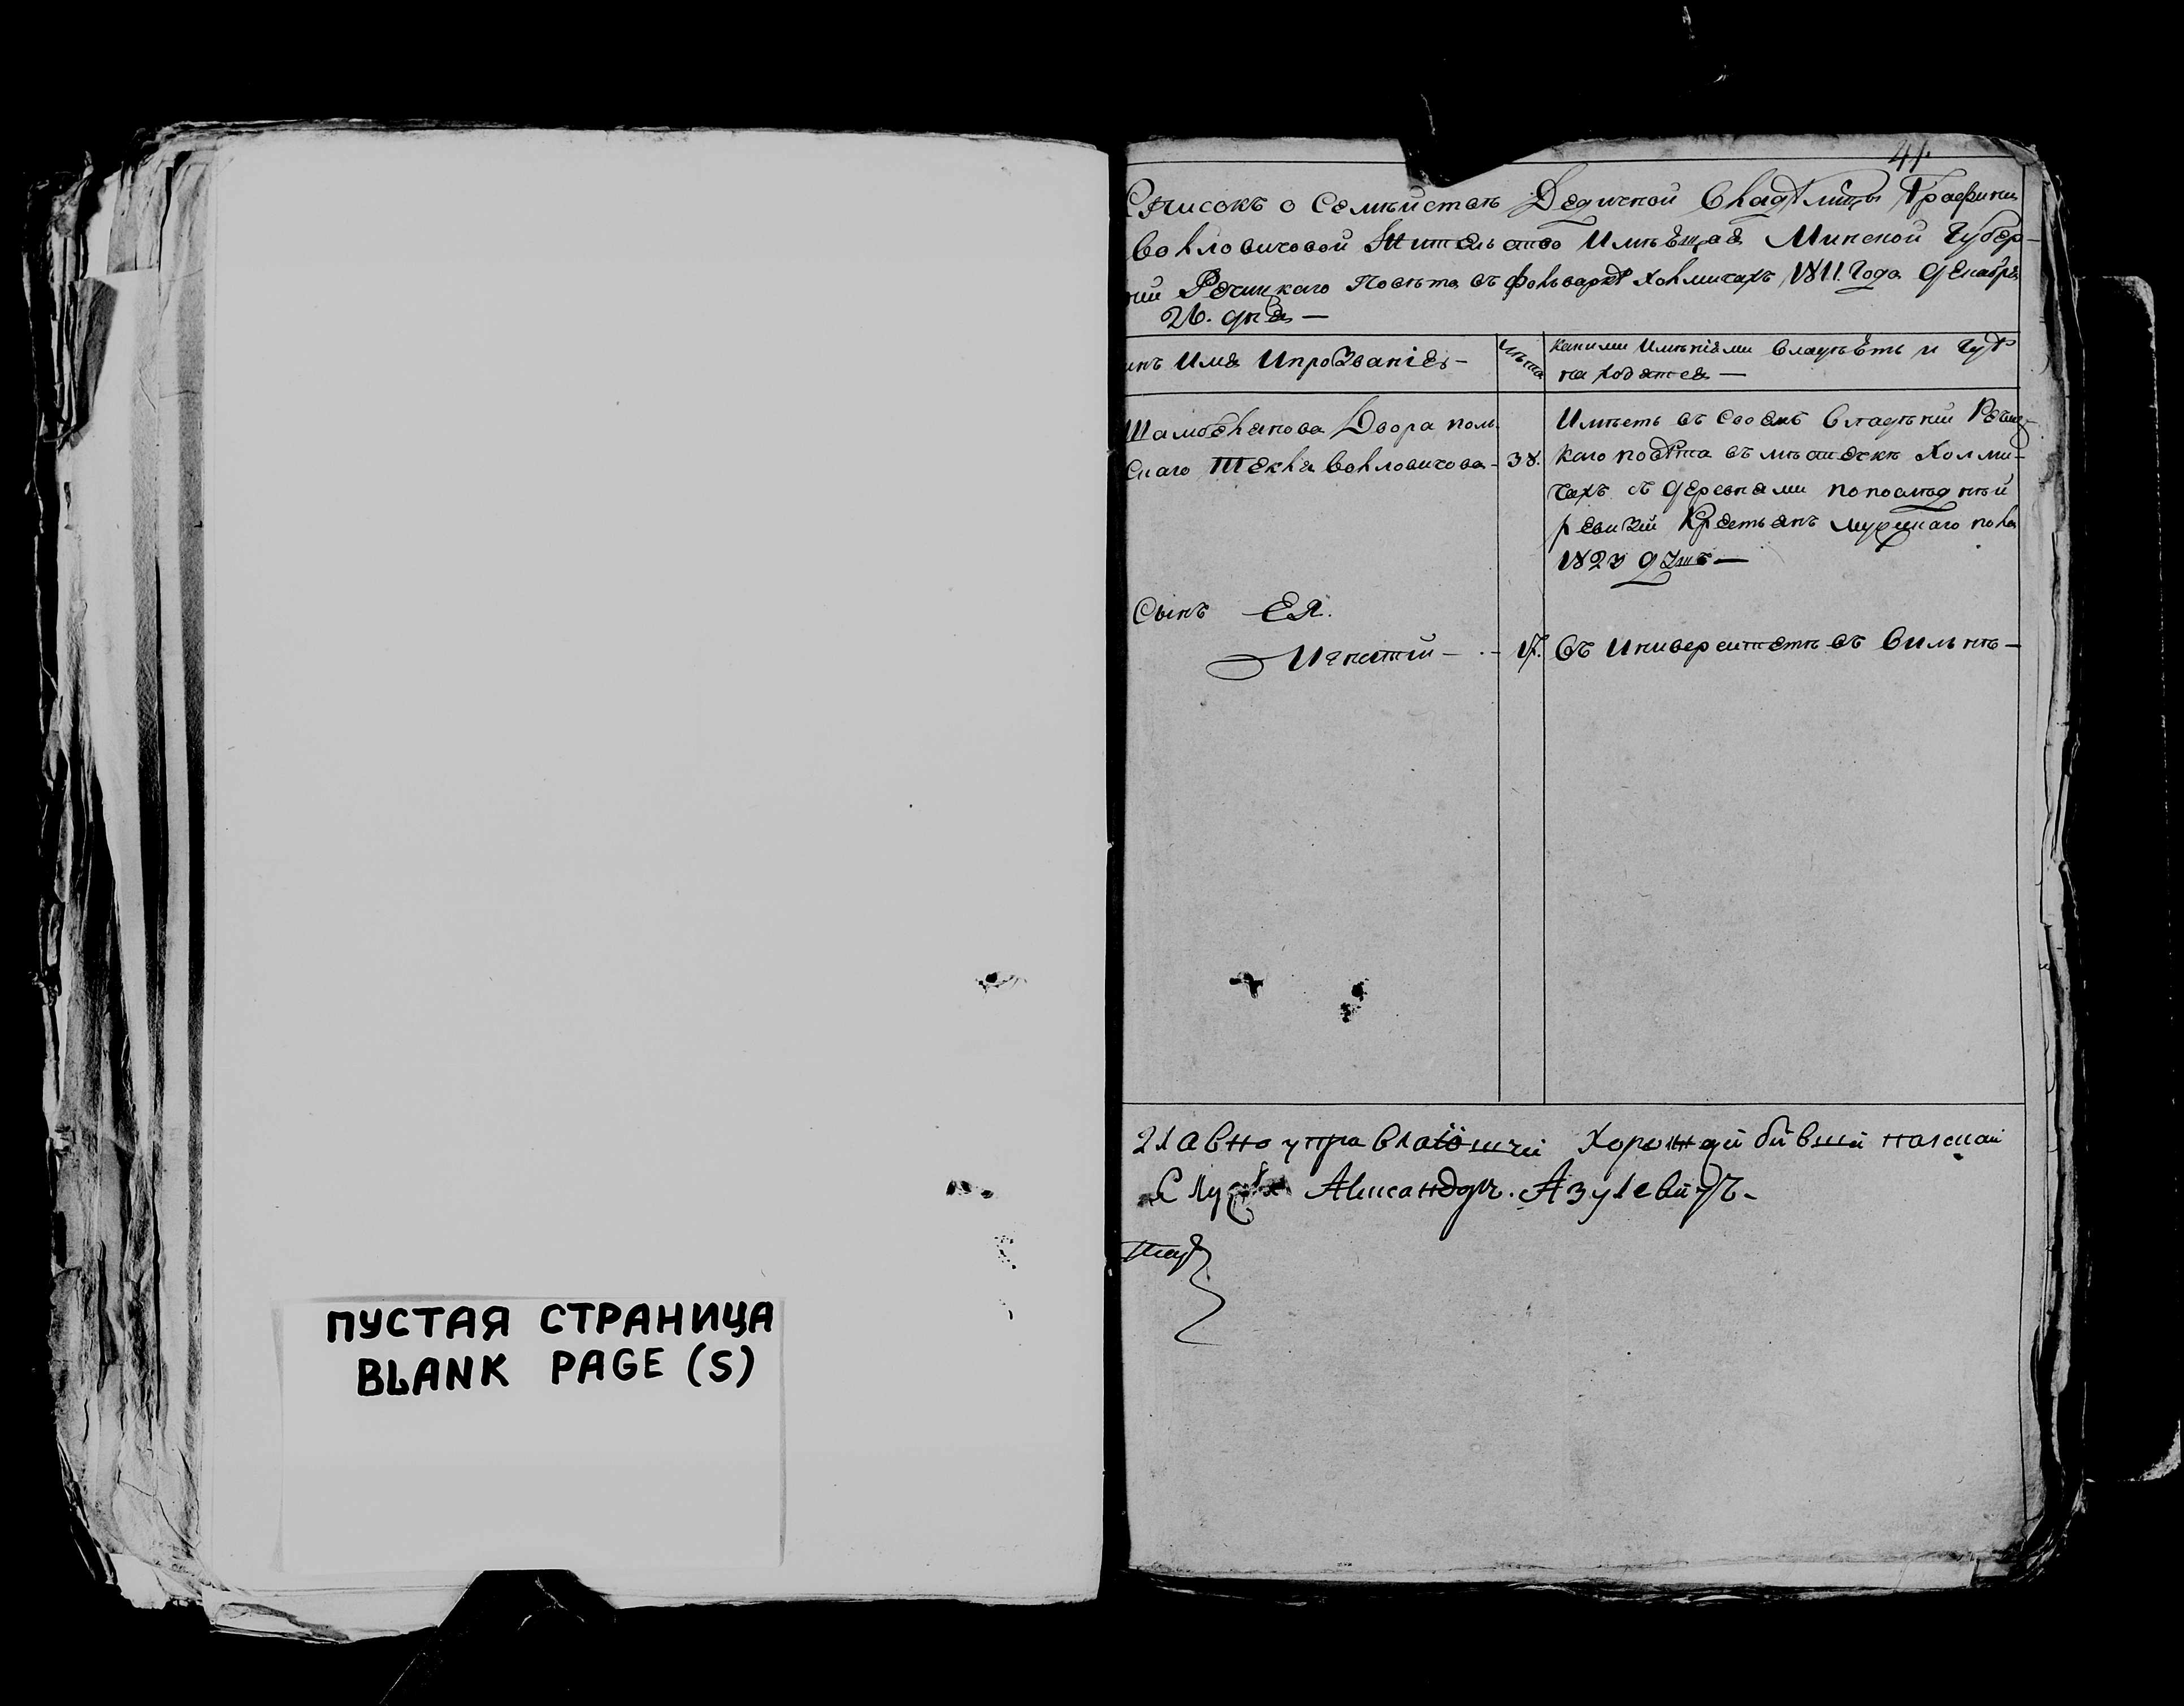 ПУСТАЯ СТРАНИЦА
BLANK PAGE (S)
41.
Списокъ о Семѣйствѣ Дедичной Владѣлицы Графини
Воловичовой Жительство Имѣющая Минской Губер-
нии Речицкаго Повѣта въ фольваркѣ Холмичахъ 1811. Года Декабря
26. дня —
инъ Имя Ипрозваніе —
Лѣта
Какими Имѣніями Владѣеть и Гдѣ
находятся —
Шамбелянова Двора поль
скаго Текля Воловичова - 38.
Имѣеть въ своемъ Владѣнии Речиц-
каго повѣта въ мѣстечкѣ Холми-
чахъ съ деревнями попослѣдней
ревизии Крестьянъ мужескаго пола
1823 душъ —
Сынъ Ея.
Игнатий — - 17. Въ Университетѣ въ Вильнѣ —
Главно управляющий Хорунжий бивший полской
Службы Александръ Азулевичъ -